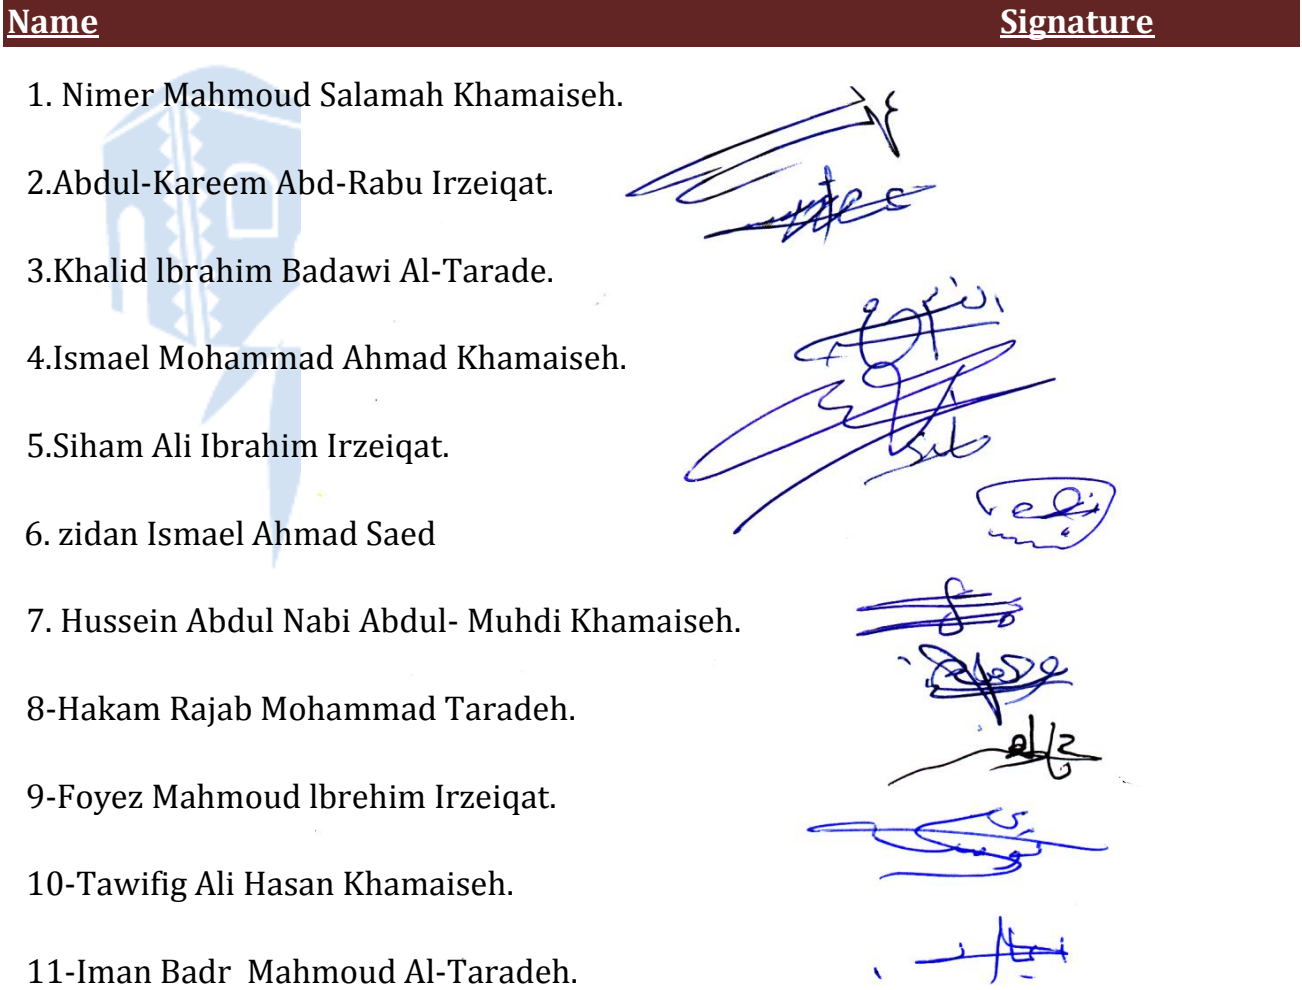 Name Signature
1. Nimer Mahmoud Salamah Khamaiseh.
2.Abdul-Kareem Abd-Rabu Irzeiqat.
3.Khalid lbrahim Badawi Al-Tarade.
4.Ismael Mohammad Ahmad Khamaiseh.
5.Siham Ali Ibrahim Irzeiqat.
6. zidan Ismael Ahmad Saed
7. Hussein Abdul Nabi Abdul- Muhdi Khamaiseh.
8-Hakam Rajab Mohammad Taradeh.
9-Foyez Mahmoud lbrehim Irzeiqat.
10-Tawifig Ali Hasan Khamaiseh.
11-Iman Badr  Mahmoud Al-Taradeh.